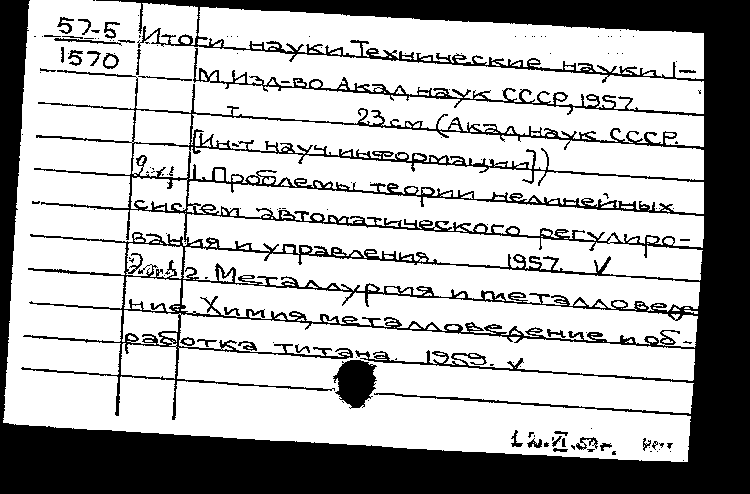 57-5
1570
Итоги науки. Технические науки. 1-
М, Изд-во Акад. наук СССР, 1957.
т. 23 см. (Акад. наук СССР.
[Ин-т науч. информации])
1. Проблемы теории нелинейных
систем автоматического регулиро-
вания и управления. 1957. ✓
2. Металлургия и металловеде
ние. Химия, металловедение и об-
работка титана. 1959. ✓